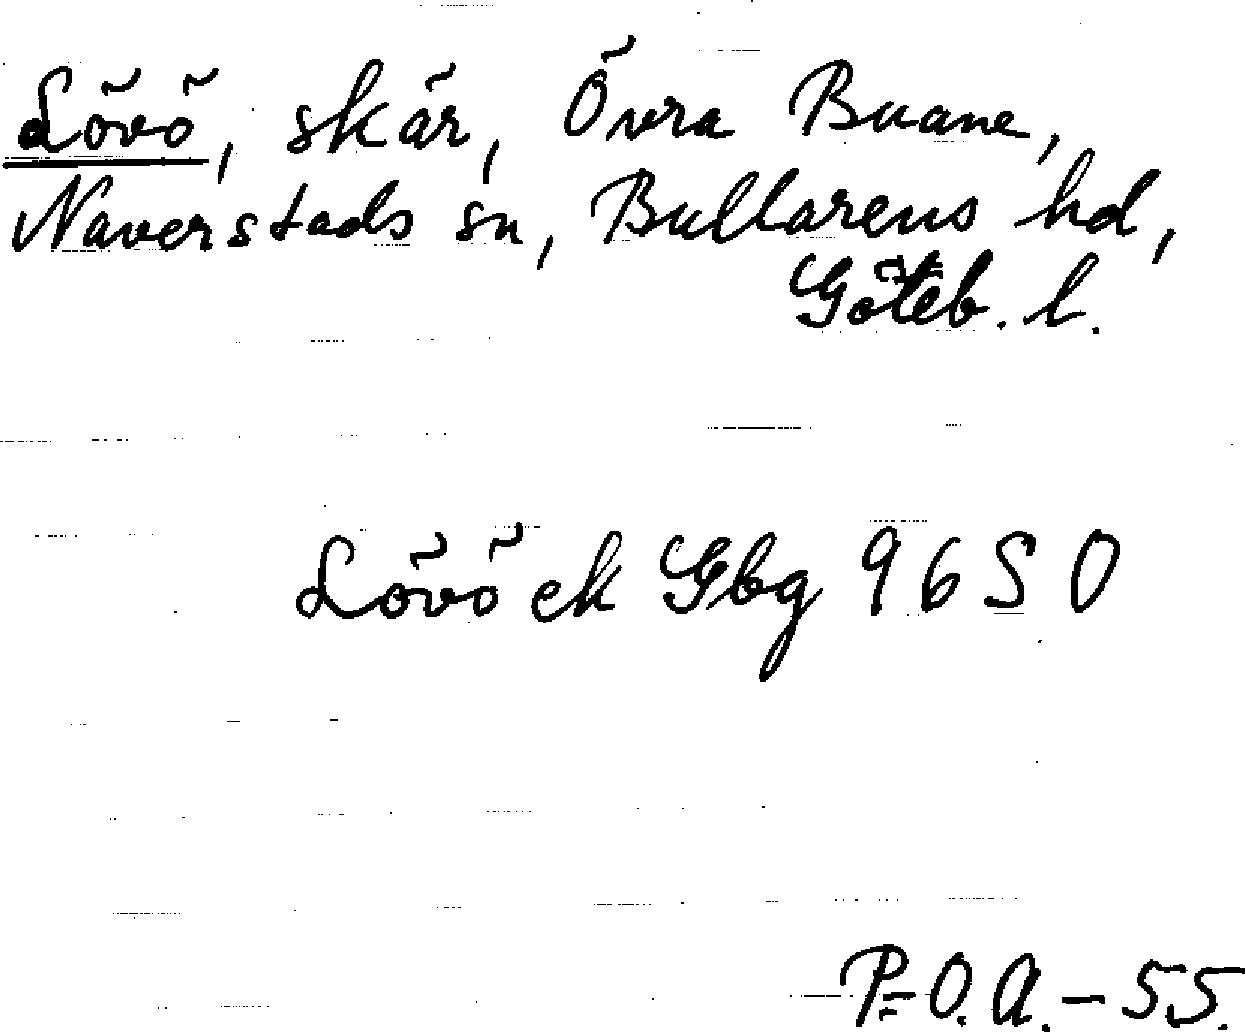 Lövö, skär, Övra Buane,
Naverstads sn, Bullarens hd,
Göteb. l.
Lövö ek Gbg 9650
P-O.A.-55.